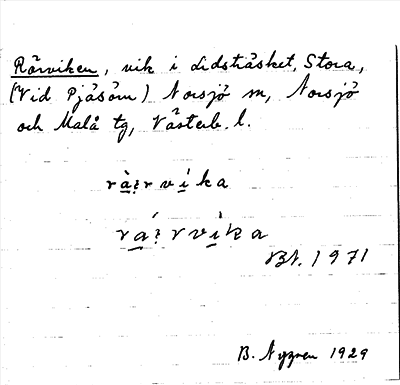 Rörviken, vik i Lidsträsket, Stora,
(Vid Pjäsöm) Norsjö sn, Norsjö
och Malå tg, Västerb. l.
rà̱ꝛrvi̱ka
rá̱ꝛrvi̱ka
BN. 1971
B. Nygren 1929